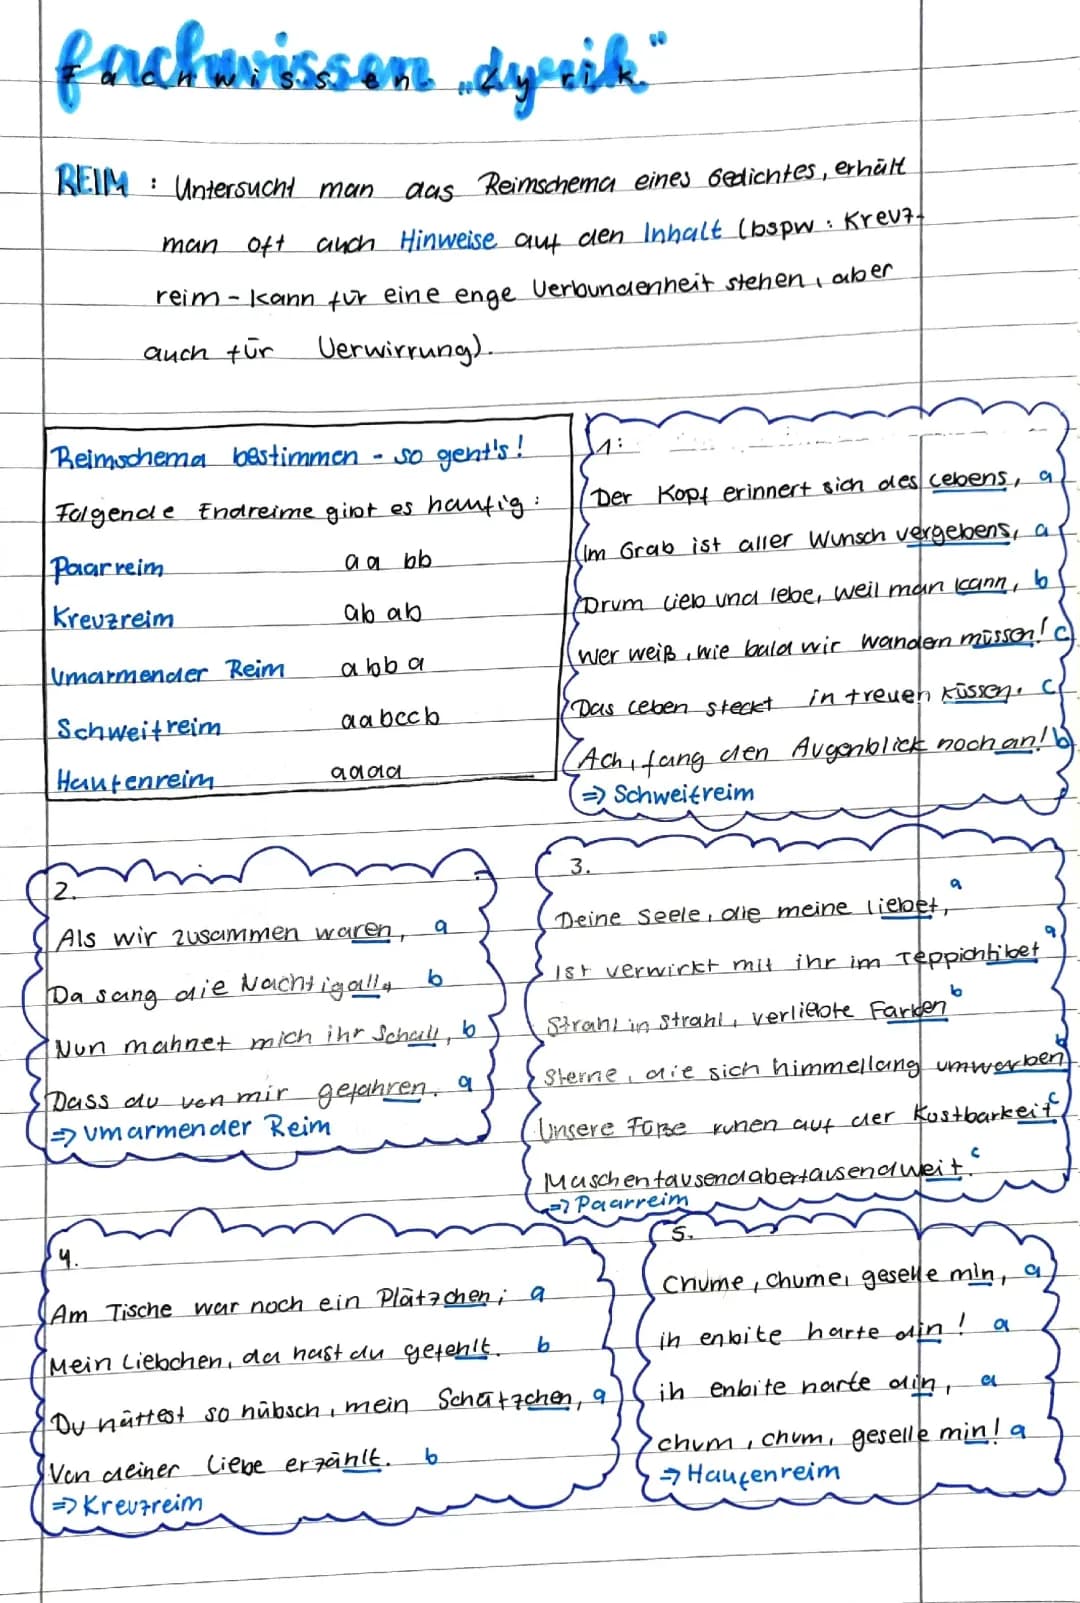 Fachwissen „Lyrik"
REIM : Untersucht man das Reimschema eines Gedichtes, erhält
man oft auch Hinweise auf den Inhalt (bspw : Kreuz-
reim - kann für eine enge Verbundenheit stehen, aber
auch für Verwirrung).
Reimschema bestimmen - so geht's!
Folgende Endreime gibt es häufig :
Paarreim aa bb
Kreuzreim ab ab
Umarmender Reim abba
Schweifreim aabccb
Haufenreim aaaa
1:
Der Kopf erinnert sich des Lebens, a
Im Grab ist aller Wunsch vergebens, a
Drum lieb und lebe, weil man kann, b
Wer weiß, wie bald wir wandern müssen! c
Das Leben steckt in treuen Küssen. c
Ach, fang den Augenblick noch an! b
=> Schweifreim
2.
Als wir zusammen waren, a
Da sang die Nachtigall, b
Nun mahnet mich ihr Schall, b
Dass du von mir gefahren. a
=> Umarmender Reim
3.
Deine Seele, die meine liebet, a
Ist verwirkt mit ihr im Teppichtibet a
Strahl in Strahl, verliebte Farben b
Sterne, die sich himmellang umwarben b
Unsere Füße ruhen auf der Kostbarkeit c
Maschentausendabertausendweit. c
=> Paarreim
4.
Am Tische war noch ein Plätzchen; a
Mein Liebchen, da hast du gefehlt. b
Du hättest so hübsch, mein Schätzchen, a
Von deiner Liebe erzählt. b
=> Kreuzreim
5.
Chume, chume, geselle min, a
ih enbite harte din! a
ih enbite harte din, a
chum, chum, geselle min! a
=> Haufenreim